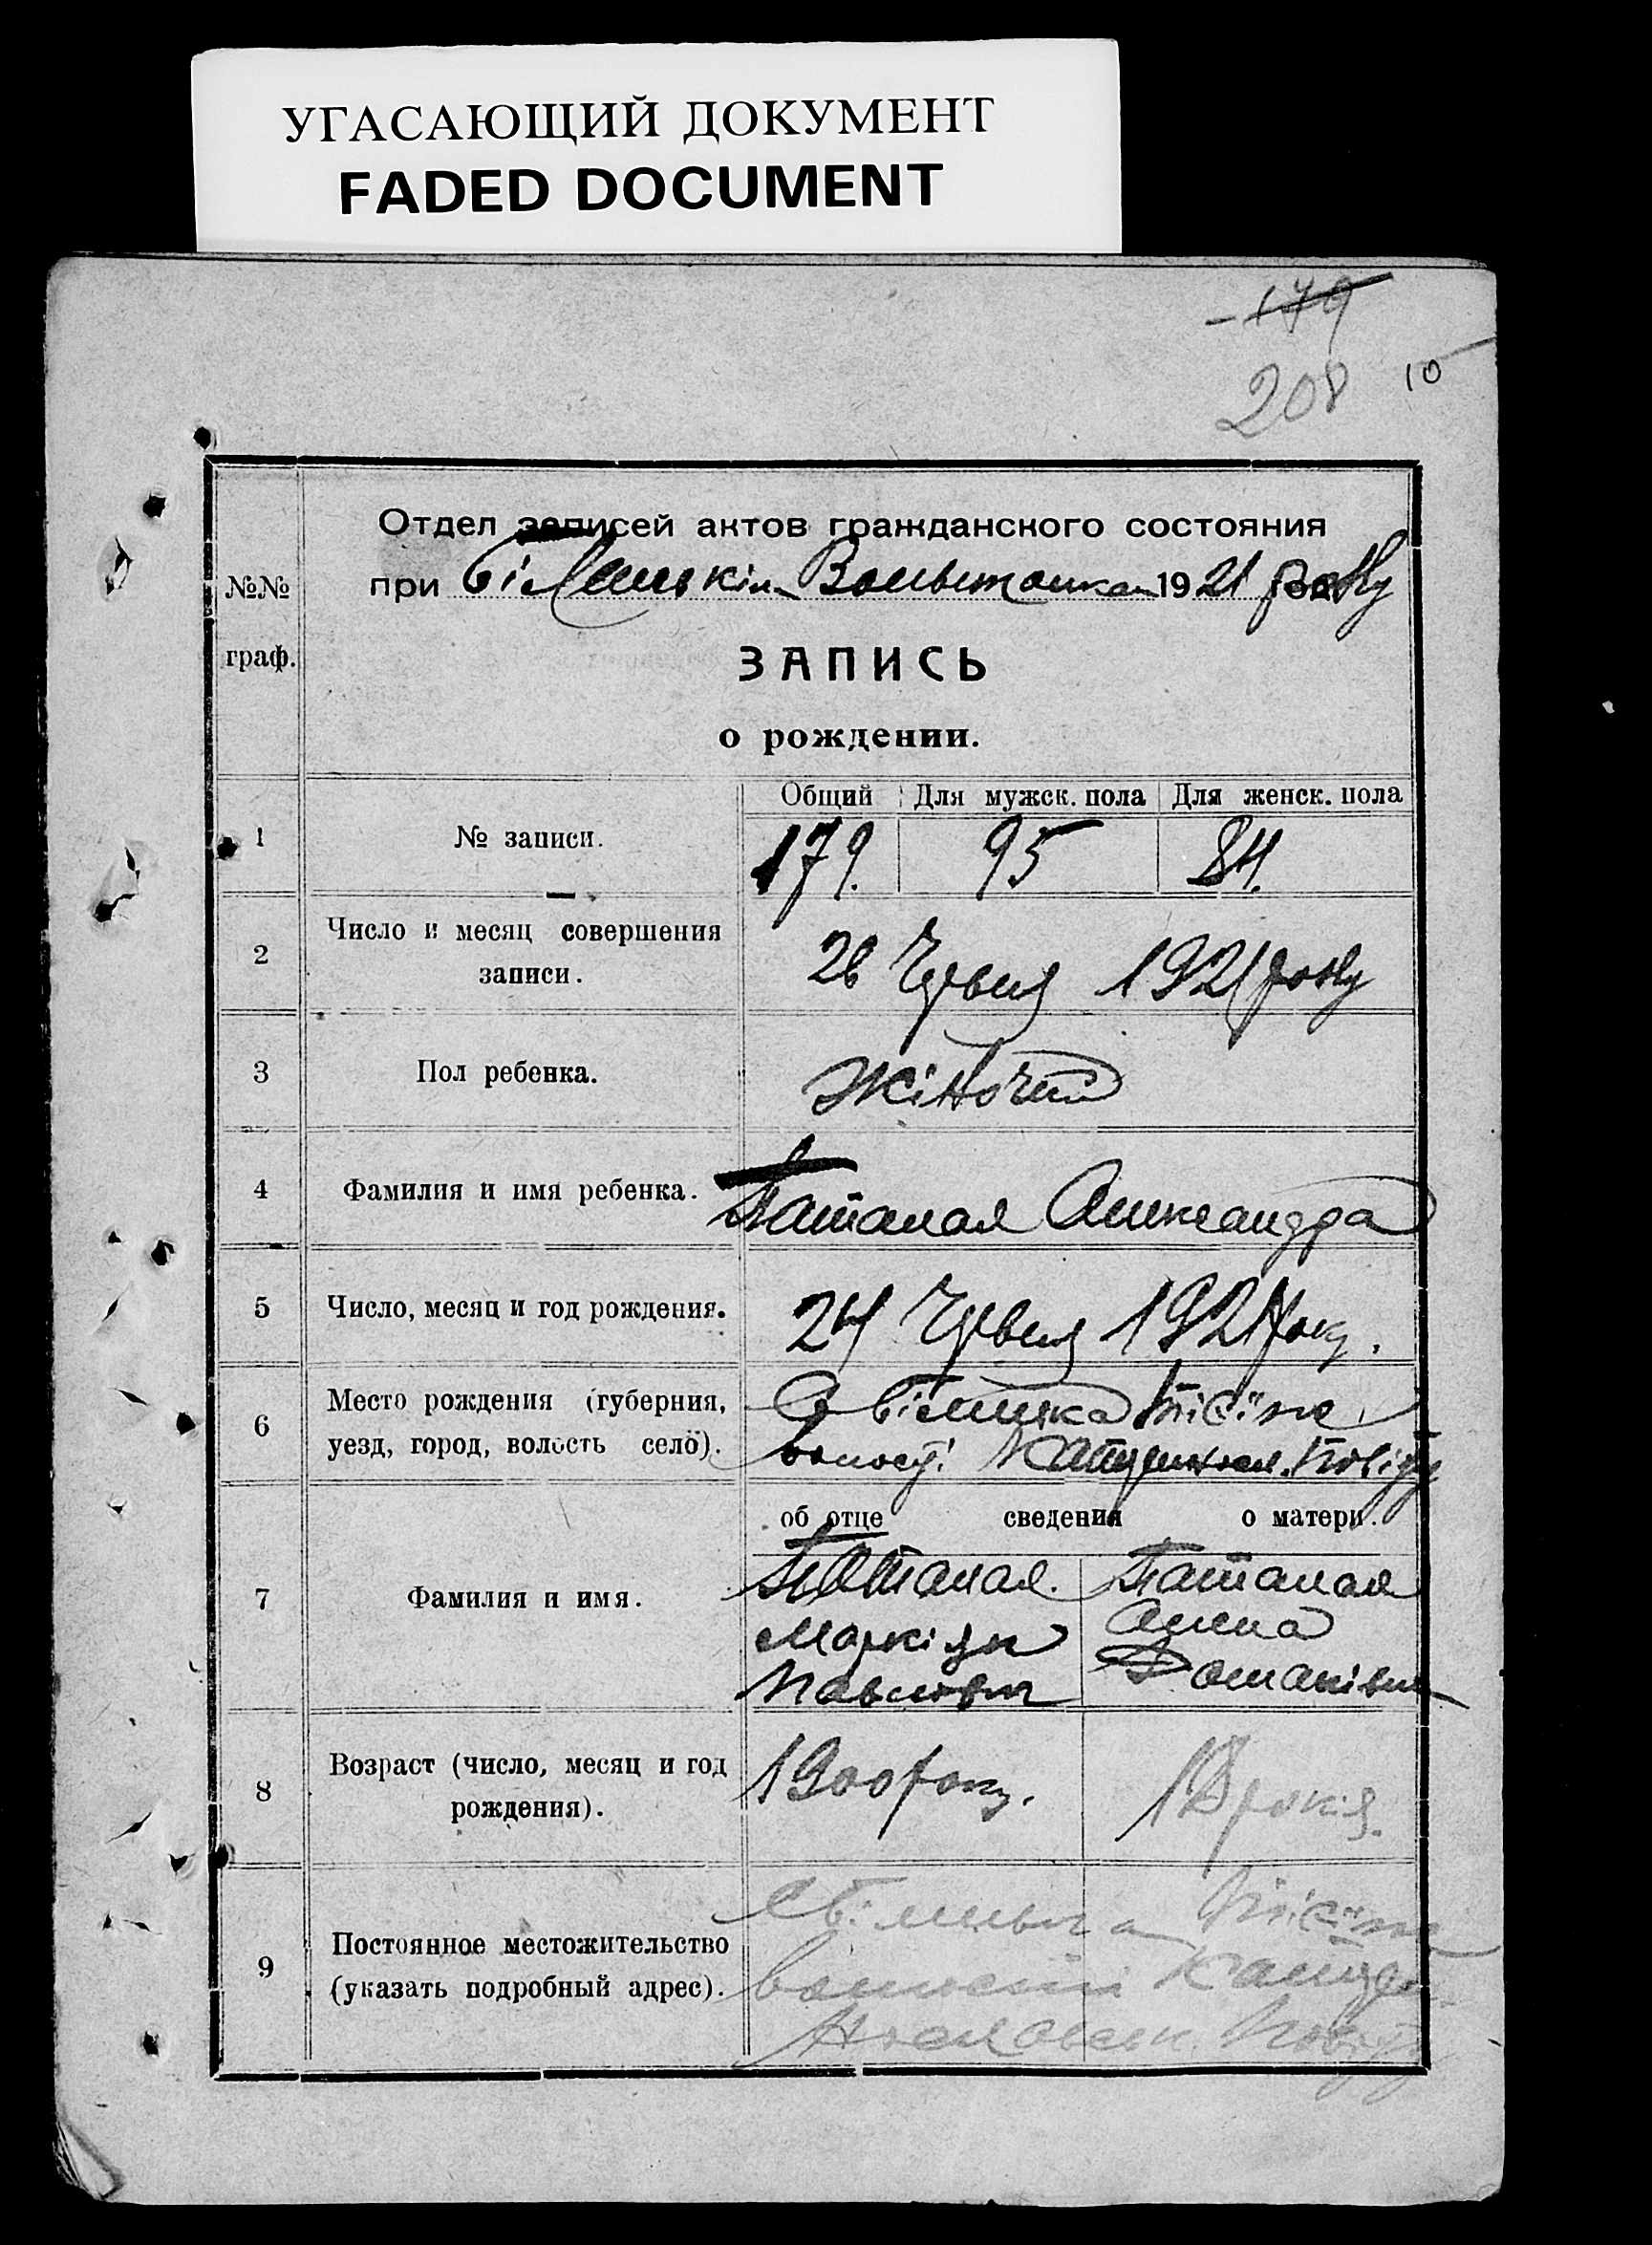 УГАСАЮЩИЙ ДОКУМЕНТ
FADED DOCUMENT
179
208 10
Отдел записей актов гражданского состояния
№№ при 1921 року
граф.
ЗАПИСЬ
о рождении.
Общий Для мужск. пола Для женск. пола
1 № записи. 179. 95 84.
2 Число и месяц совершения записи. 26 Червня 1921 року
3 Пол ребенка. Жіночий
4 Фамилия и имя ребенка. Паталах Александра
5 Число, месяц и год рождения. 24 Червня 1921 року.
6 Место рождения (губерния,
уезд, город, волость село). волості повіту
об отце сведения о матери.
7 Фамилия и имя. Паталах Паталах
Маркіян
Павлович
8 Возраст (число, месяц и год 1900 року. років.
рождения).
9 Постоянное местожительство
(указать подробный адрес). волости
повіту